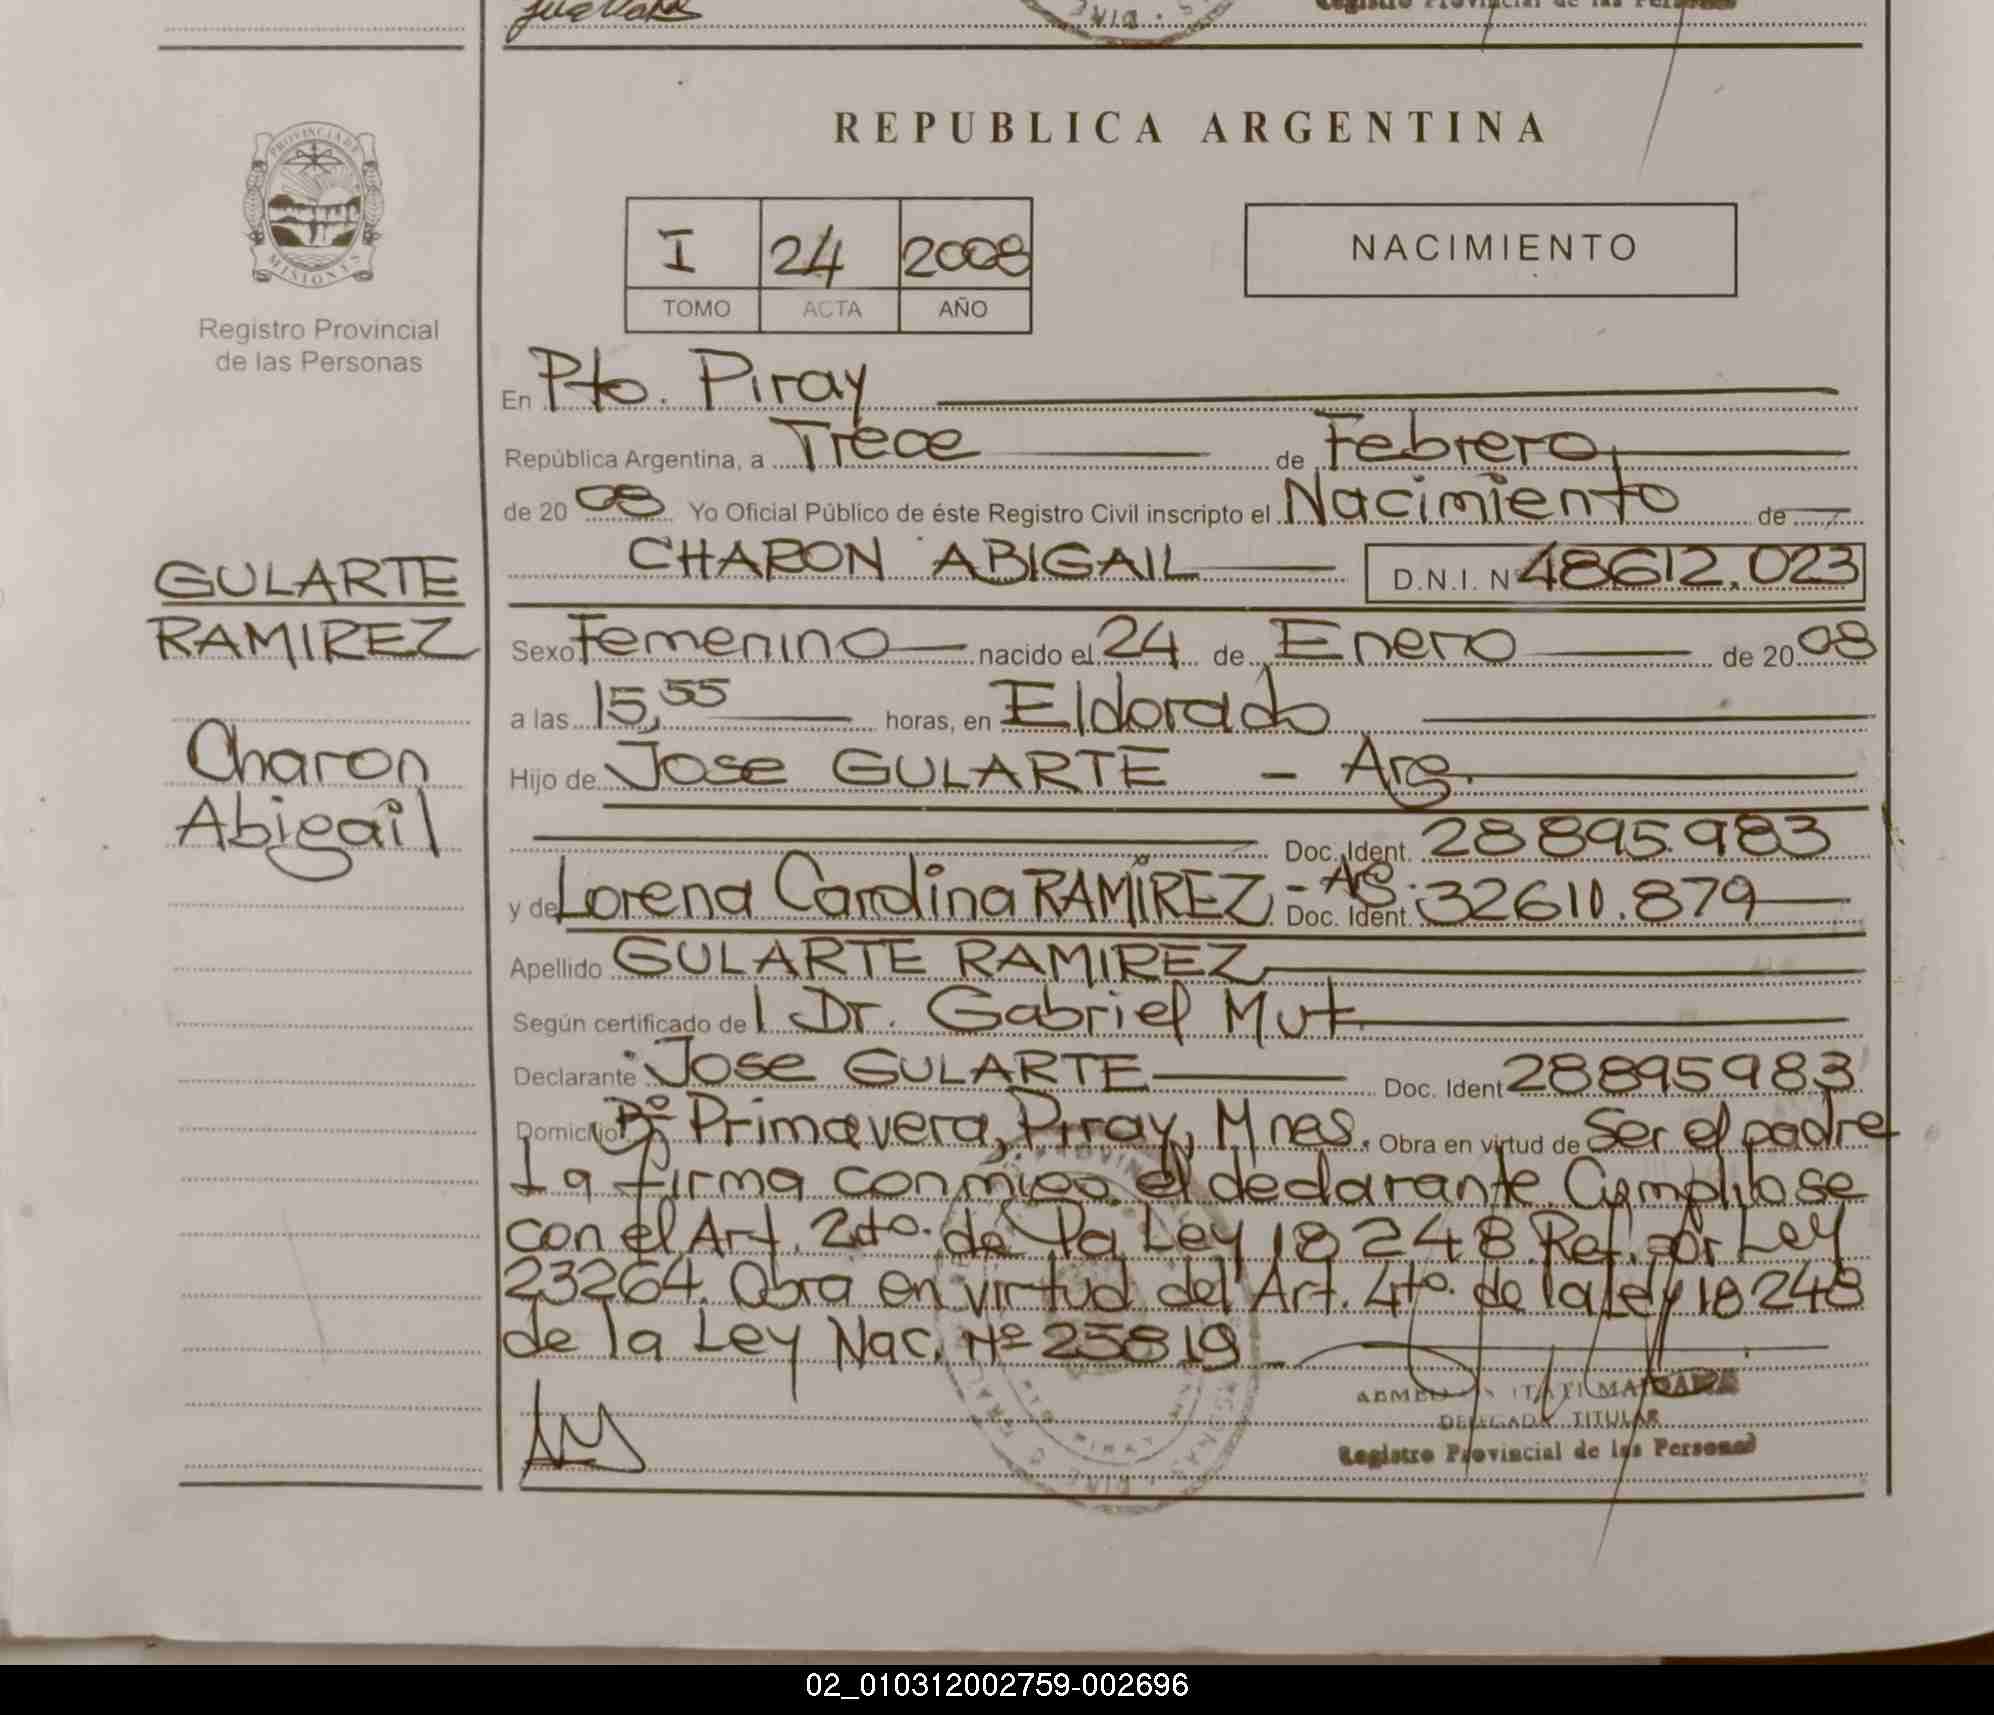 REPUBLICA ARGENTINA
PROVINCIA DE
MISIONES
Registro Provincial
de las Personas
I 24 2008
TOMO ACTA AÑO
NACIMIENTO
En Pto. Piray
República Argentina, a Trece de Febrero
de 20 08 Yo Oficial Público de éste Registro Civil inscripto el Nacimiento de
CHARON ABIGAIL D.N.I. Nº 48612.023
GULARTE
RAMIREZ
Charon
Abigail
Sexo Femenino nacido el 24 de Enero de 20 08
a las 15,55 horas, en Eldorado
Hijo de Jose GULARTE - Arg.
Doc. Ident. 28895.983
y de Lorena Carolina RAMIREZ - Arg. Doc. Ident. 32610.879
Apellido GULARTE RAMIREZ
Según certificado de l Dr. Gabriel Mut
Declarante Jose GULARTE Doc. Ident 28895983
Domicilio Bº Primavera, Piray, Mnes. Obra en virtud de Ser el padre
La firma conmigo el declarante. Cumplióse
con el Art. 2do. de la Ley 18248 Ref. por Ley
23264. Obra en virtud del Art. 4to. de la Ley 18248
de la Ley Nac. Nº 25819
ITATI
DELEGADA TITULAR
Registro Provincial de las Personas
02_010312002759-002696